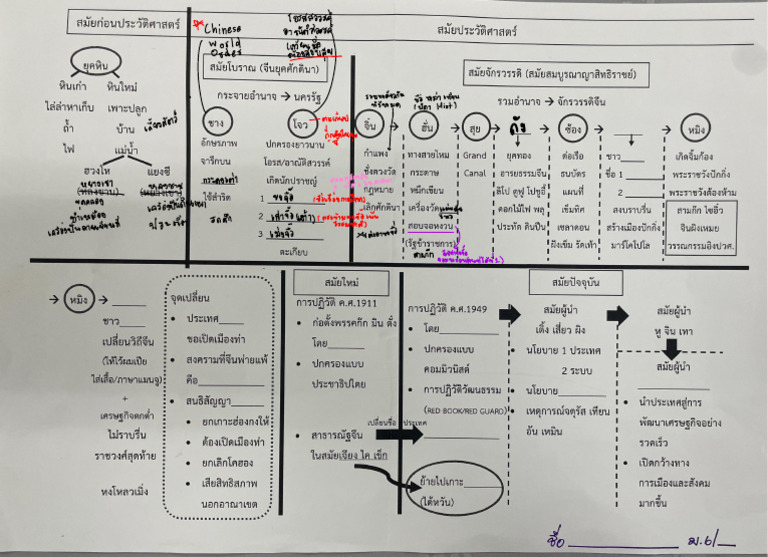 สมัยก่อนประวัติศาสตร์
Chinese
World
Order
โอรสสวรรค์
อาณัติสวรรค์
สมัยประวัติศาสตร์
ยุคหิน
หินเก่า หินใหม่
ไล่ล่าหาเก็บ เพาะปลูก
ถ้ำ บ้าน เลี้ยงสัตว์
ไฟ แม่น้ำ
ฮวงโห แยงซี
สมัยโบราณ (จีนยุคศักดินา)
กระจายอำนาจ → นครรัฐ
ชาง
อักษรภาพ
จารึกบน
กระดองเต่า
ใช้สำริด
โจว
ปกครองยาวนาน
โอรส/อาณัติสวรรค์
เกิดนักปราชญ์
1 ขงจื๊อ
2 เล่าจื๊อ (เต๋า)
3 เม่งจื๊อ
ตะเกียบ
สมัยจักรวรรดิ (สมัยสมบูรณาญาสิทธิราชย์)
รวมอำนาจ → จักรวรรดิจีน
จิ๋น
กำแพง
ชั่งตวงวัด
กฎหมาย
เลิกศักดินา
ฮั่น
ทางสายไหม
กระดาษ
หมึกเขียน
เครื่องวัด
สอบจอหงวน
(รัฐข้าราชการ)
สุย
Grand
Canal
ถัง
ยุคทอง
อารยธรรมจีน
ลิโป ตูฟู โปซูอี้
ดอกไม้ไฟ พลุ
ประทัด ดินปืน
ซ้อง
ต่อเรือ
ธนบัตร
แผนที่
เข็มทิศ
เซลาดอน
ฝังเข็ม รัดเท้า
______
ชาว____
ชื่อ 1 ______
2 ______
สงบราบรื่น
สร้างเมืองปักกิ่ง
มาร์โคโปโล
หมิง
เกิดจิ้มก้อง
พระราชวังปักกิ่ง
พระราชวังต้องห้าม
สามก๊ก ไซอิ๋ว
จินผิงเหมย
วรรณกรรมอิงปวศ.
→ หมิง → ______
ชาว____
เปลี่ยนวิถีจีน
(ให้ไว้ผมเปีย
ใส่เสื้อ/ภาษาแมนจู)
+
เศรษฐกิจตกต่ำ
ไม่ราบรื่น
ราชวงศ์สุดท้าย
หงโหลวเมิ่ง
จุดเปลี่ยน
• ประเทศ____
ขอเปิดเมืองท่า
• สงครามที่จีนพ่ายแพ้
คือ__________
• สนธิสัญญา______
• ยกเกาะฮ่องกงให้
• ต้องเปิดเมืองท่า
• ยกเลิกโคฮอง
• เสียสิทธิสภาพ
นอกอาณาเขต
สมัยใหม่
การปฏิวัติ ค.ศ.1911
• ก่อตั้งพรรคก๊ก มิน ตั๋ง
โดย________
• ปกครองแบบ
ประชาธิปไตย
• สาธารณรัฐจีน
ในสมัยเจียง ไค เช็ก
เปลี่ยนชื่อ ประเทศ
สมัยปัจจุบัน
การปฏิวัติ ค.ศ.1949
• โดย__________
• ปกครองแบบ
คอมมิวนิสต์
• การปฏิวัติวัฒนธรรม
(RED BOOK/RED GUARD)
ย้ายไปเกาะ______
(ไต้หวัน)
สมัยผู้นำ
เติ้ง เสี่ยว ผิง
• นโยบาย 1 ประเทศ
2 ระบบ
• นโยบาย________
• เหตุการณ์จตุรัส เทียน
อัน เหมิน
สมัยผู้นำ
หู จิน เทา
สมัยผู้นำ
____________
• นำประเทศสู่การ
พัฒนาเศรษฐกิจอย่าง
รวดเร็ว
• เปิดกว้างทาง
การเมืองและสังคม
มากขึ้น
ชื่อ____________ ม.6/__